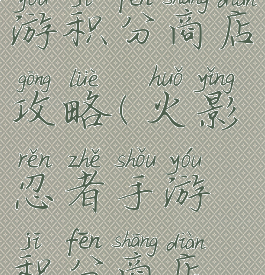 yóu jī fēn shāng diàn
游积分商店
gōng lüè huǒ yǐng
攻略(火影
rěn zhě shǒu yóu
忍者手游
jī fēn shāng diàn
积分商店